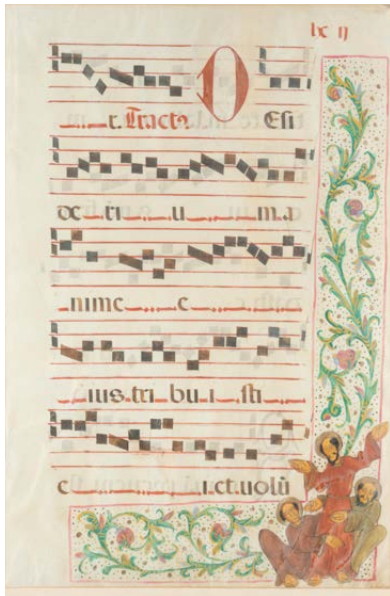 lx ij
r. Tractꝰ D Esi
de ri u m a
nime e
ius tri bu i sti
e i et uolū